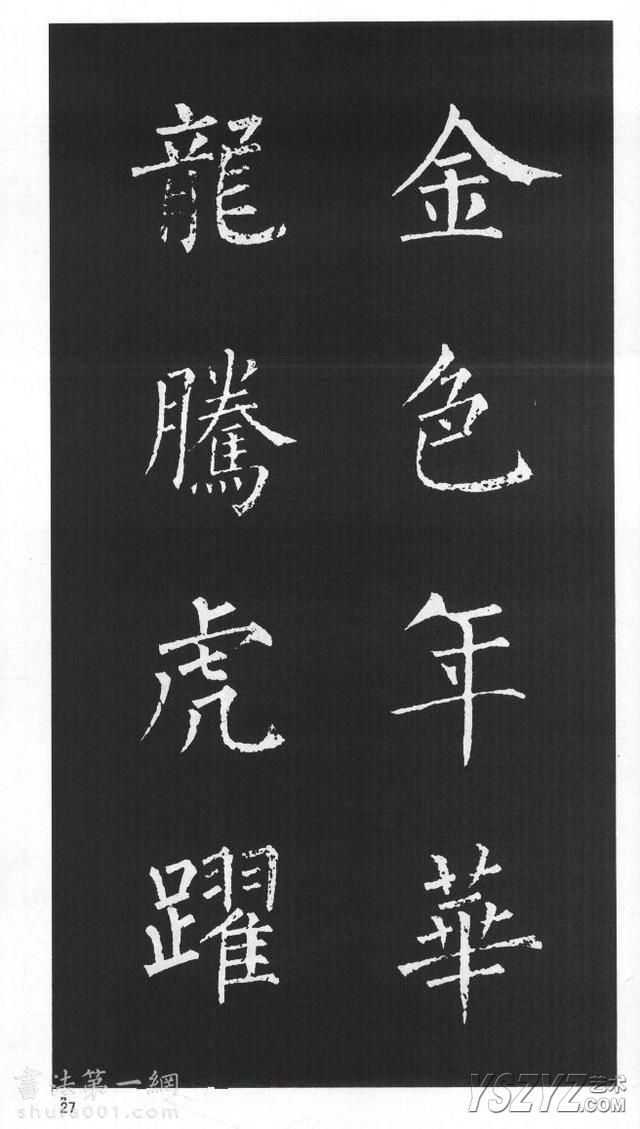 金色年華
龍騰虎躍
書法第一網
shufa001.com
27
YSZYZ艺术
.COM